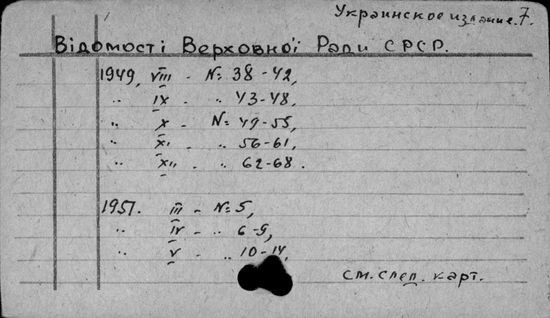 Украинское издание. 7.
Відомості Верховної Ради СРСР.
1949, VIII - №: 38-42,
" IX - " 43-48,
" X - №: 49-55,
" XI - " 56-61,
" XII - " 62-68.
1951. III - №: 5,
" IV - " 6-9,
" V - " 10-14,
см. след. карт.